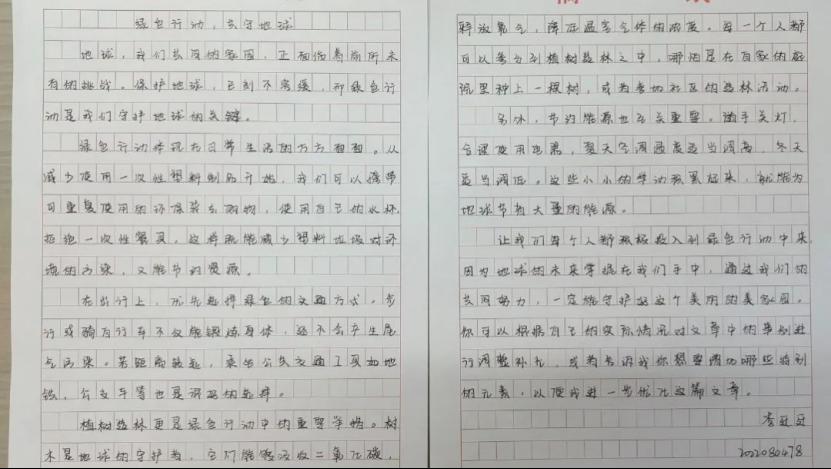 绿色行动，共守地球
地球，我们共同的家园，正面临着前所未
有的挑战。保护地球，已刻不容缓，而绿色行
动是我们守护地球的关键。
绿色行动体现在日常生活的方方面面。从
减少使用一次性塑料制品开始，我们可以携带
可重复使用的环保袋去购物，使用自己的水杯，
拒绝一次性餐具。这样既能减少塑料垃圾对环
境的污染，又能节约资源。
在出行上，优先选择绿色的交通方式。步
行或骑自行车不仅能锻炼身体，还不会产生尾
气污染。若距离较远，乘坐公共交通工具如地
铁、公交车等也是评估的选择。
植树造林更是绿色行动中的重要举措。树
木是地球的守护者，它们能够吸收二氧化碳，
释放氧气，降低温室气体的浓度。每一个人都
可以参与到植树造林之中，哪怕是在自家的庭
院里种上一棵树，或为参加社区的造林活动。
另外，节约能源也至关重要。随手关灯，
合理使用电器，夏天空调温度适当调高，冬天
适当调低。这些小小的举动积累起来，就能为
地球节省大量的能源。
让我们每个人都积极投入到绿色行动中来，
因为地球的未来掌握在我们手中，通过我们的
共同努力，一定能守护好这个美丽的美家园。
你可以根据自己的实际情况对文章中的事例进
行调整补充，或者告诉我你想要增加哪些特别
的元素，以便我进一步优化这篇文章。
李豆豆
2022080478